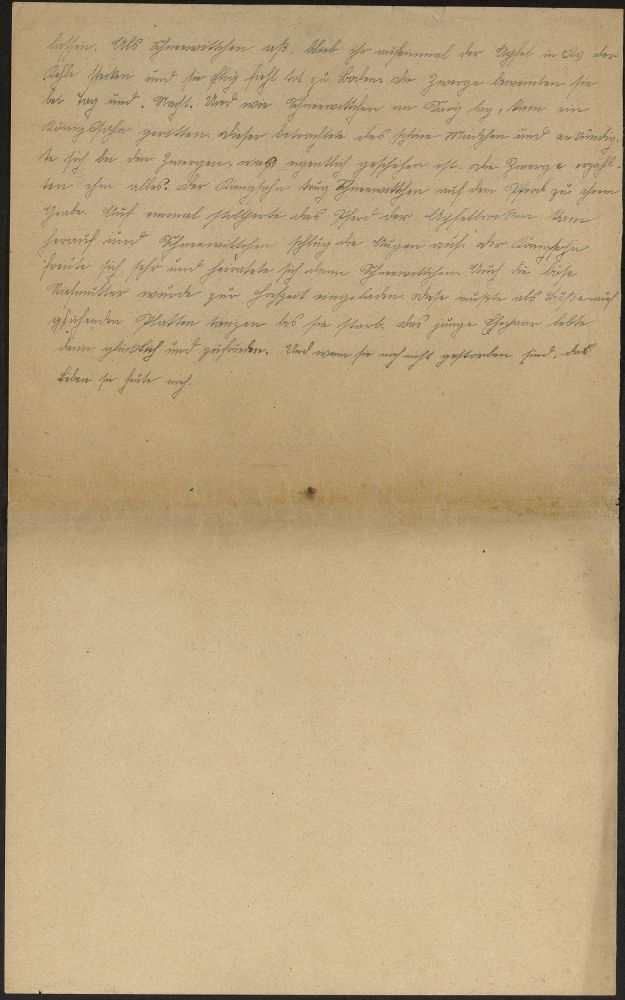 lassen. Als Schneewittchen aß, blieb ihr aufeinmal der Apfel in der
Kehle stecken und sie fiehl tot zu Boden. Die Zwerge beweinten sie
bei Tag und Nacht. Und wie Schneewittchen im Sarg lag, kam ein
Königssohn geritten. Dieser betrachtete das schöne Mädchen und erkündig-
te sich bei den Zwergen, was eigentlich geschehen ist. Die Zwerge erzähl-
ten ihm alles. Der Königssohn trug Schneewittchen auf dem Pferd zu ihrem
Grabe. Auf einmal stolperte das Pferd der Apfelbrocken kam
herauf und Schneewittchen schlug die Augen auf. Der Königssohn
freute sich sehr und heiratete sich dann Schneewittchen. Auch die böse
Stiefmutter wurde zur Hochzeit eingeladen. Diese mußte als Buße auf
glühenden Platten tanzen bis sie starb. Das junge Ehepaar lebte
dann glücklich und zufrieden. Und wenn sie noch nicht gestorben sind, das
Leben sie heute noch.